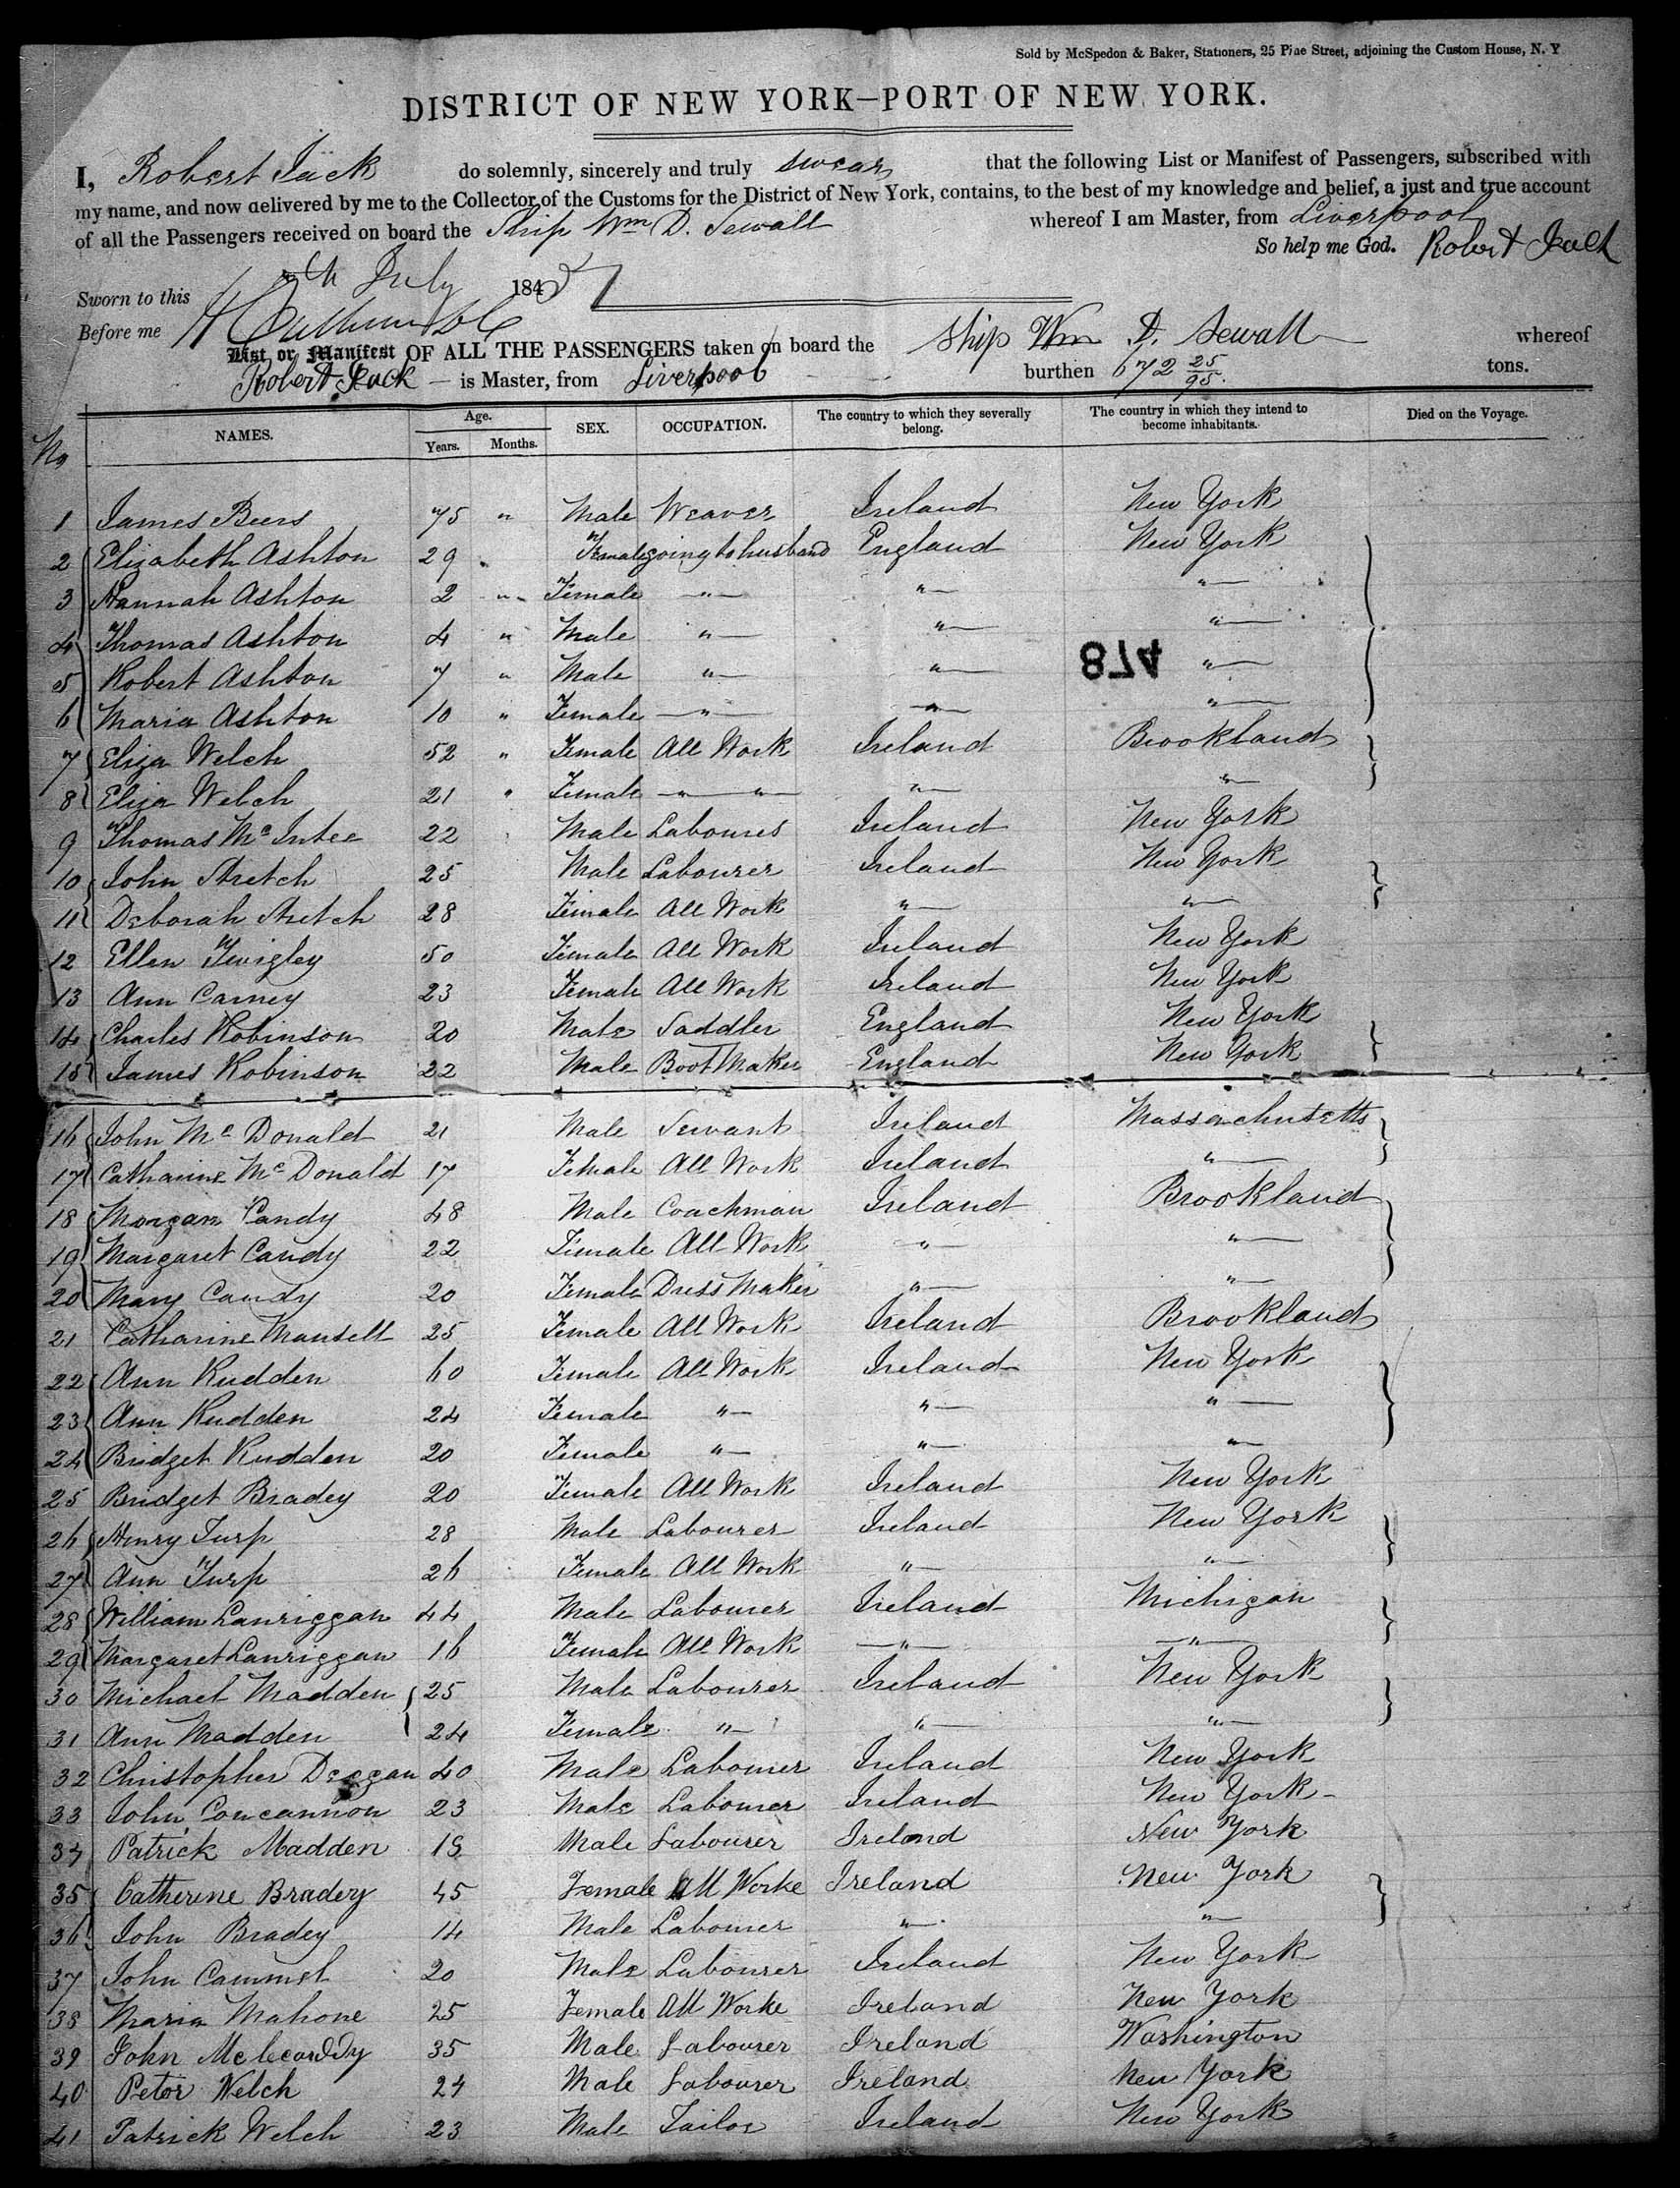 Sold by McSpedon & Baker, Stationers, 25 Pine Street, adjoining the Custom House, N. Y
DISTRICT OF NEW YORK—PORT OF NEW YORK.
I, Robert Jack do solemnly, sincerely and truly swear that the following List or Manifest of Passengers, subscribed with
my name, and now delivered by me to the Collector of the Customs for the District of New York, contains, to the best of my knowledge and belief, a just and true account
of all the Passengers received on board the Ship Wm D. Sewall whereof I am Master, from Liverpool
So help me God. Robert Jack
Sworn to this July 184
Before me
List or Manifest OF ALL THE PASSENGERS taken on board the Ship Wm D. Sewall whereof
Robert Jack — is Master, from Liverpool burthen 672 25/95 tons.
No NAMES. Age. Years. Months. SEX. OCCUPATION. The country to which they severally belong. The country in which they intend to become inhabitants. Died on the Voyage.
1 James Beers 75 " Male Weaver Ireland New York
2 Elizabeth Ashton 29 " Female going to husband England New York
3 Hannah Ashton 2 " Female " " "
4 Thomas Ashton 4 " Male " " "
874
5 Robert Ashton 7 " Male " " "
6 Maria Ashton 10 " Female " " "
7 Eliza Welch 52 " Female All Work Ireland Brookland
8 Eliza Welch 21 " Female " " " "
9 Thomas Mc Intee 22 Male Labourer Ireland New York
10 John Stretch 25 Male Labourer Ireland New York
11 Deborah Stretch 28 Female All Work " "
12 Ellen Twigley 50 Female All Work Ireland New York
13 Ann Carney 23 Female All Work Ireland New York
14 Charles Robinson 20 Male Saddler England New York
15 James Robinson 22 Male Boot Maker England New York
16 John Mc Donald 21 Male Servant Ireland Massachusetts
17 Catharine Mc Donald 17 Female All Work Ireland "
18 Morgan Candy 48 Male Coachman Ireland Brookland
19 Margaret Candy 22 Female All Work " "
20 Mary Candy 20 Female Dress Maker " "
21 Catharine Mansell 25 Female All Work Ireland Brookland
22 Ann Rudden 60 Female All Work Ireland New York
23 Ann Rudden 24 Female " " "
24 Bridget Rudden 20 Female " " "
25 Bridget Bradey 20 Female All Work Ireland New York
26 Henry Turp 28 Male Labourer Ireland New York
27 Ann Turp 26 Female All Work " "
28 William Lanriggan 44 Male Labourer Ireland Michigan
29 Margaret Lanriggan 16 Female All Work " "
30 Michael Madden 25 Male Labourer Ireland New York
31 Ann Madden 24 Female " " "
32 Christopher Deegan 40 Male Labourer Ireland New York
33 John Concannon 23 Male Labourer Ireland New York
34 Patrick Madden Male Labourer Ireland New York
35 Catherine Bradey 45 Female All Worke Ireland New York
36 John Bradey 14 Male Labourer " "
37 John Cammel 20 Male Labourer Ireland New York
38 Maria Mahone 25 Female All Worke Ireland New York
39 John 35 Male Labourer Ireland Washington
40 Peter Welch 24 Male Labourer Ireland New York
41 Patrick Welch 23 Male Tailor Ireland New York